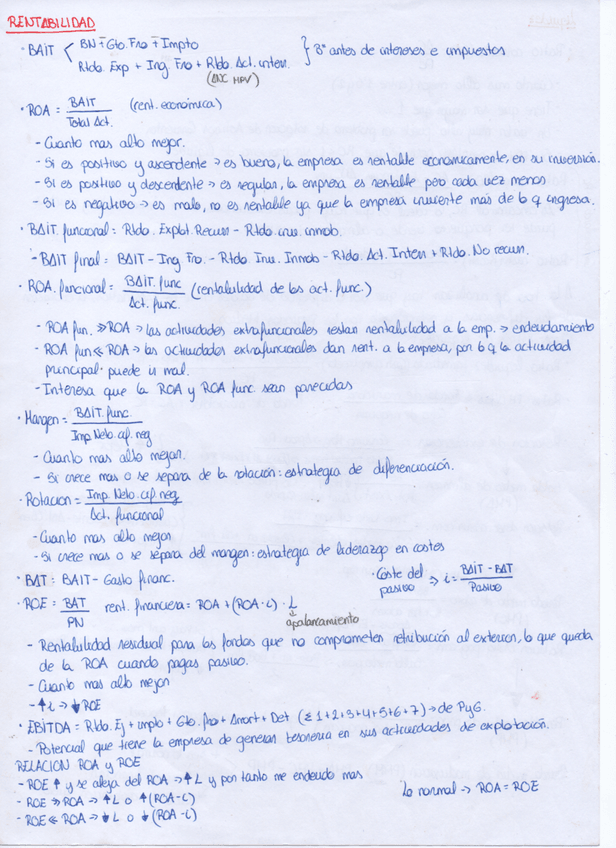 RENTABILIDAD
· BAIT < BN + Gto. Fro + Impto
Rtdo. Exp + Ing Fro + Rtdo. Act. inten.
} Bº antes de intereses e impuestos
(ANC MPV)
· ROA = BAIT / Total Act. (rent. económica)
- Cuanto mas alto mejor.
- Si es positivo y ascendente → es bueno, la empresa es rentable economicamente, en su inversión.
- Si es positivo y descendente → es regular, la empresa es rentable pero cada vez menos
- Si es negativo → es malo, no es rentable ya que la empresa invierte más de lo q ingresa.
· BAIT. funcional = Rtdo. Explot. Recurr - Rtdo. inv. inmob.
- BAIT final = BAIT - Ing Fro. - Rtdo Inv. Inmob - Rtdo. Act. Inten + Rtdo. No recurr.
· ROA. funcional = BAIT. func / Act. func. (rentabilidad de los act. func.)
- ROA fun. >> ROA → las actividades extrafuncionales restan rentabilidad a la emp. → endeudamiento
- ROA fun << ROA → las actividades extrafuncionales dan rent. a la empresa, por lo q la actividad
principal puede ir mal.
- Interesa que la ROA y ROA func sean parecidas
· Margen = BAIT. func. / Imp. Neto. cif. neg
- Cuanto mas alto mejor.
- Si crece mas o se separa de la rotación: estrategia de diferenciación.
· Rotacion = Imp. Neto. cif. neg. / Act. funcional
- Cuanto mas alto mejor
- Si crece mas o se separa del margen: estrategia de liderazgo en costes
· BAT: BAIT - Gasto financ.
· Coste del pasivo ⇒ i = BAIT - BAT / Pasivo
· ROE = BAT / PN rent. financiera = ROA + (ROA - i) · L
apalancamiento
- Rentabilidad residual para los fondos que no comprometen retribución al exterior, lo que queda
de la ROA cuando pagas pasivo.
- Cuanto mas alto mejor
- ↑ i → ↓ ROE
· EBITDA = Rtdo. Ej + impto + Gto. fro + Amort + Det (Σ 1+2+3+4+5+6+7) → de PyG.
- Potencial que tiene la empresa de generar tesoreria en sus actividades de explotación.
RELACION ROA y ROE
- ROE ↑ y se aleja del ROA → ↑ L y por tanto me endeudo mas
- ROE >> ROA → ↑ L o ↑ (ROA - i)
- ROE << ROA → ↓ L o ↓ (ROA - i)
Lo normal → ROA = ROE